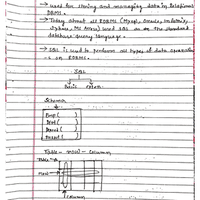 → used for storing and managing data in Relational
DBMS.
→ Today almost all RDBMS (MySql, Oracle, Informix,
Sybase, MS Access) used SQL as the standard
database query language.
→ SQL is used to perform all types of data operations
on RDBMS.
SQL
Basic
Schema
Emp( )
Dept( )
Table - row - column
Table
row
column